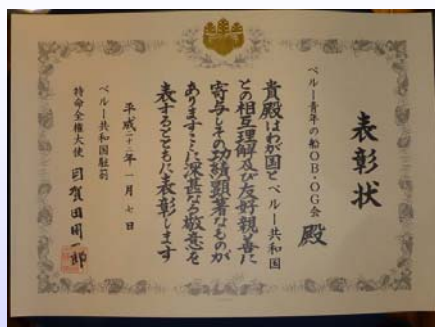 表彰状
ペルー青年の船OB・OG会 殿
貴殿はわが国とペルー共和国
との相互理解及び友好親善に
寄与しその功績顕著なものが
ありますここに深甚なる敬意を
表するとともに表彰します
平成二十二年一月七日
ペルー共和国駐箚
特命全権大使 目賀田周一郎